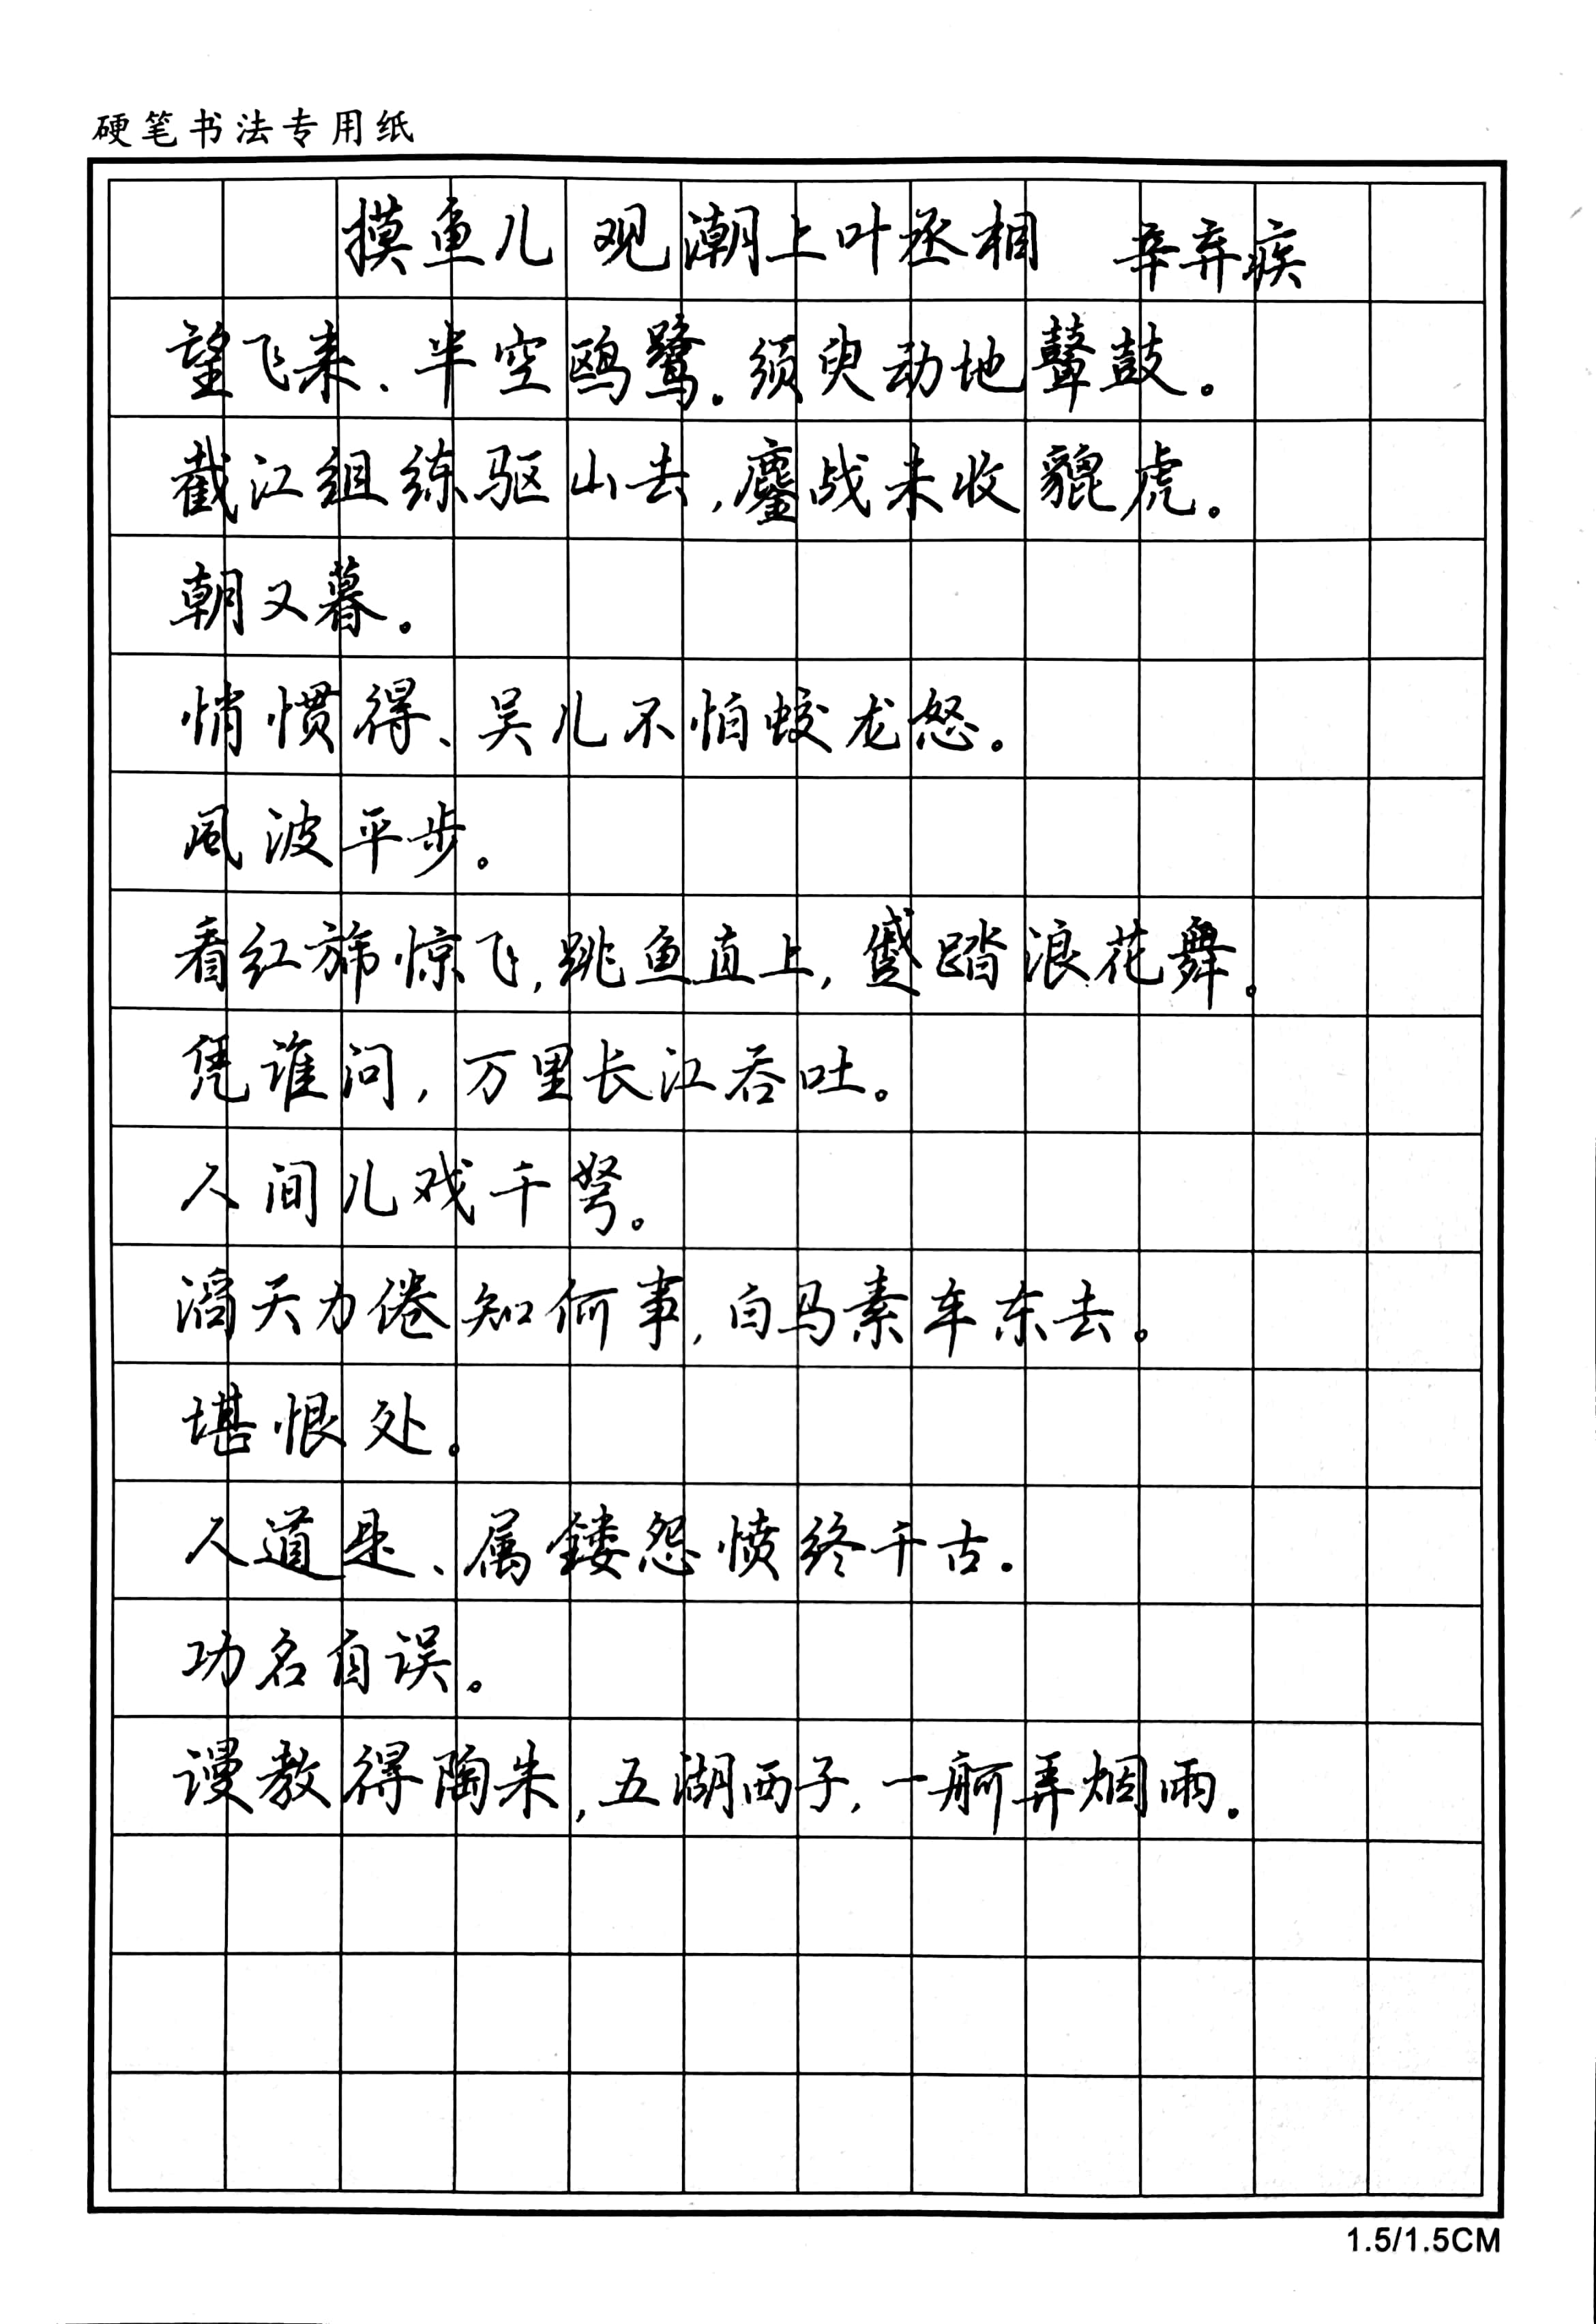 硬笔书法专用纸
摸鱼儿 观潮上叶丞相 辛弃疾
望飞来、半空鸥鹭。须臾动地鼙鼓。
截江组练驱山去,鏖战未收貔虎。
朝又暮。
悄惯得、吴儿不怕蛟龙怒。
風波平步。
看红旆惊飞,跳鱼直上,蹙踏浪花舞。
凭谁问,万里长江吞吐。
人间儿戏千弩。
滔天力倦知何事,白马素车东去。
堪恨处。
人道是、属镂怨愤终千古。
功名自误。
谩教得陶朱,五湖西子,一舸弄烟雨。
1.5/1.5CM